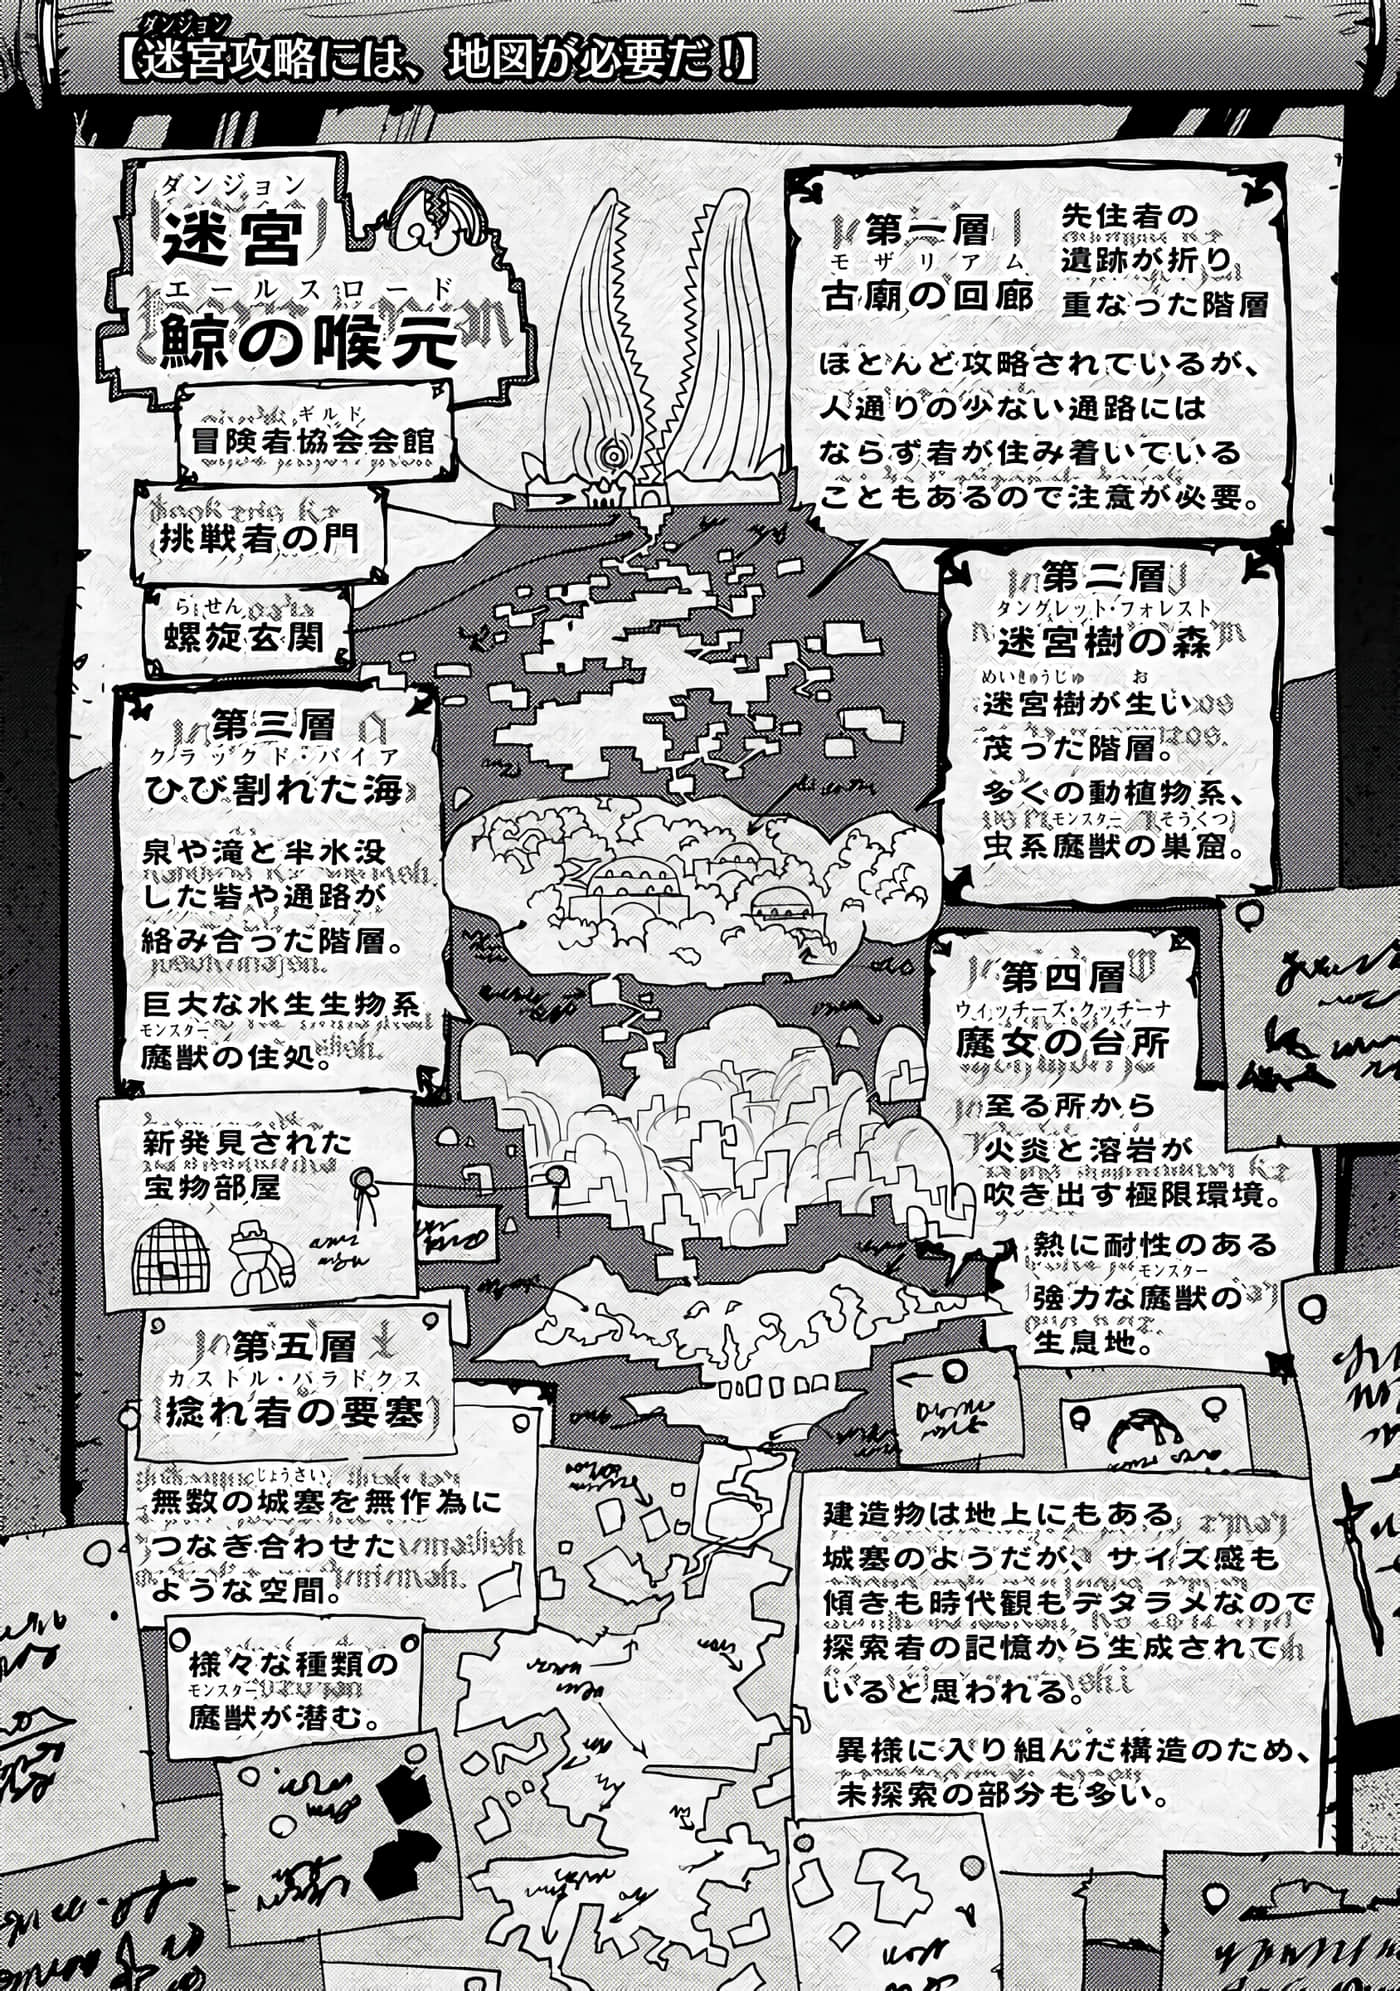 ダンジョン
【迷宮攻略には、地図が必要だ!】
ダンジョン
迷宮
エールスロード
鯨の喉元
ギルド
冒険者協会会館
挑戦者の門
らせん
螺旋玄関
第一層
モザリアム
古廟の回廊
先住者の
遺跡が折り
重なった階層
ほとんど攻略されているが、
人通りの少ない通路には
ならず者が住み着いている
こともあるので注意が必要。
第二層
タングレット・フォレスト
迷宮樹の森
めいきゅうじゅ お
迷宮樹が生い
茂った階層。
多くの動植物系、
モンスター そうくつ
虫系魔獣の巣窟。
第三層
クラックド・バイア
ひび割れた海
泉や滝と半水没
した砦や通路が
絡み合った階層。
巨大な水生生物系
モンスター
魔獣の住処。
新発見された
宝物部屋
第四層
ウィッチーズ・クッチーナ
魔女の台所
至る所から
火炎と溶岩が
吹き出す極限環境。
熱に耐性のある
モンスター
強力な魔獣の
生息地。
第五層
カストル・パラドクス
捻れ者の要塞
じょうさい
無数の城塞を無作為に
つなぎ合わせた
ような空間。
様々な種類の
モンスター
魔獣が潜む。
建造物は地上にもある
城塞のようだが、サイズ感も
傾きも時代観もデタラメなので
探索者の記憶から生成されて
いると思われる。
異様に入り組んだ構造のため、
未探索の部分も多い。